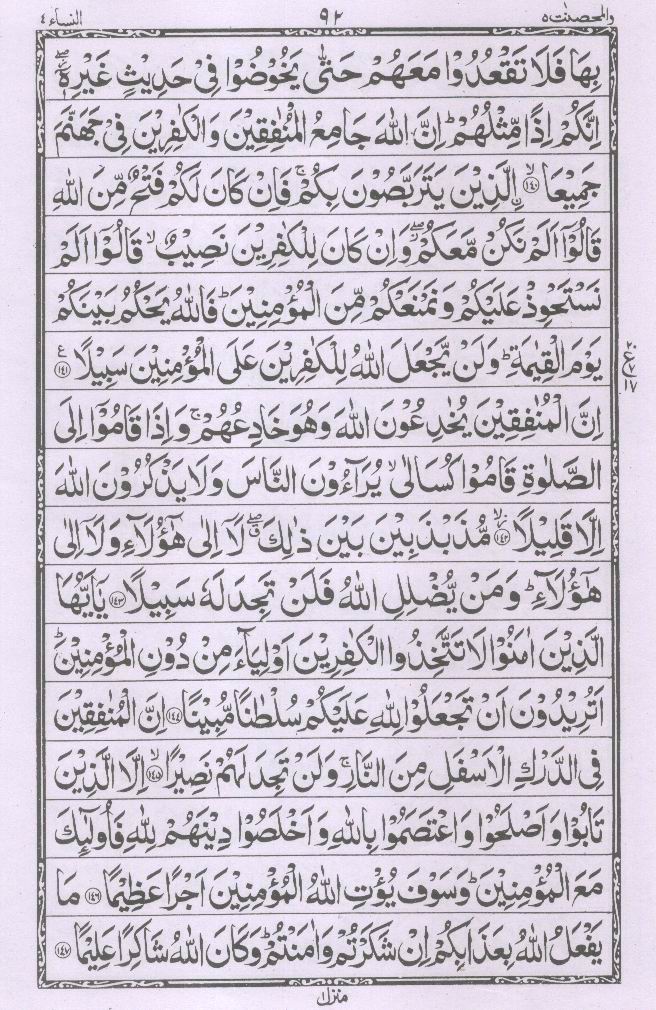 والمحصنٰت ٥ ٩٢ النساء ٤
بِهَا فَلَا تَقْعُدُوْا مَعَهُمْ حَتّٰى يَخُوْضُوْا فِىْ حَدِيْثٍ غَيْرِهٖۤ ۖ
اِنَّكُمْ اِذًا مِّثْلُهُمْ ؕ اِنَّ اللّٰهَ جَامِعُ الْمُنٰفِقِيْنَ وَالْكٰفِرِيْنَ فِىْ جَهَنَّمَ
جَمِيْعَا ۙ﴿١٤٠﴾ اۨلَّذِيْنَ يَتَرَبَّصُوْنَ بِكُمْ ۚ فَاِنْ كَانَ لَكُمْ فَتْحٌ مِّنَ اللّٰهِ
قَالُوْۤا اَلَمْ نَكُنْ مَّعَكُمْ ۖ وَاِنْ كَانَ لِلْكٰفِرِيْنَ نَصِيْبٌ ۙ قَالُوْۤا اَلَمْ
نَسْتَحْوِذْ عَلَيْكُمْ وَنَمْنَعْكُمْ مِّنَ الْمُؤْمِنِيْنَ ؕ فَاللّٰهُ يَحْكُمُ بَيْنَكُمْ
يَوْمَ الْقِيٰمَةِ ؕ وَلَنْ يَّجْعَلَ اللّٰهُ لِلْكٰفِرِيْنَ عَلَى الْمُؤْمِنِيْنَ سَبِيْلًا ﴿١٤١﴾ ع
اِنَّ الْمُنٰفِقِيْنَ يُخٰدِعُوْنَ اللّٰهَ وَهُوَ خَادِعُهُمْ ۚ وَاِذَا قَامُوْۤا اِلَى
الصَّلٰوةِ قَامُوْا كُسَالٰى ۙ يُرَآءُوْنَ النَّاسَ وَلَا يَذْكُرُوْنَ اللّٰهَ
اِلَّا قَلِيْلًا ۙ﴿١٤٢﴾ مُّذَبْذَبِيْنَ بَيْنَ ذٰلِكَ ۖ لَاۤ اِلٰى هٰٓؤُلَآءِ وَلَاۤ اِلٰى
هٰٓؤُلَآءِ ؕ وَمَنْ يُّضْلِلِ اللّٰهُ فَلَنْ تَجِدَ لَهٗ سَبِيْلًا ﴿١٤٣﴾ يٰۤاَيُّهَا
الَّذِيْنَ اٰمَنُوْا لَا تَتَّخِذُوا الْكٰفِرِيْنَ اَوْلِيَآءَ مِنْ دُوْنِ الْمُؤْمِنِيْنَ ؕ
اَتُرِيْدُوْنَ اَنْ تَجْعَلُوْا لِلّٰهِ عَلَيْكُمْ سُلْطٰنًا مُّبِيْنًا ﴿١٤٤﴾ اِنَّ الْمُنٰفِقِيْنَ
فِى الدَّرْكِ الْاَسْفَلِ مِنَ النَّارِ ۚ وَلَنْ تَجِدَ لَهُمْ نَصِيْرًا ۙ﴿١٤٥﴾ اِلَّا الَّذِيْنَ
تَابُوْا وَاَصْلَحُوْا وَاعْتَصَمُوْا بِاللّٰهِ وَاَخْلَصُوْا دِيْنَهُمْ لِلّٰهِ فَاُولٰٓئِكَ
مَعَ الْمُؤْمِنِيْنَ ؕ وَسَوْفَ يُؤْتِ اللّٰهُ الْمُؤْمِنِيْنَ اَجْرًا عَظِيْمًا ﴿١٤٦﴾ مَا
يَفْعَلُ اللّٰهُ بِعَذَابِكُمْ اِنْ شَكَرْتُمْ وَاٰمَنْتُمْ ؕ وَكَانَ اللّٰهُ شَاكِرًا عَلِيْمًا ﴿١٤٧﴾
٢٠
ع ٧
١٧
منزل ١